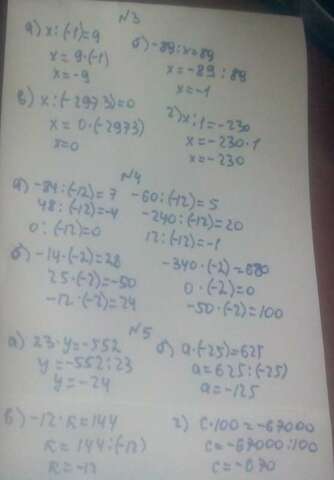 №3
а) x:(-1)=9
x=9·(-1)
x=-9
б) -89:x=89
x=-89:89
x=-1
в) x:(-2973)=0
x=0·(-2973)
x=0
г) x:1=-230
x=-230·1
x=-230
№4
а) -84:(-12)=7
48:(-12)=-4
0:(-12)=0
-60:(-12)=5
-240:(-12)=20
12:(-12)=-1
б) -14·(-2)=28
25·(-2)=-50
-12·(-2)=24
-340·(-2)=680
0·(-2)=0
-50·(-2)=100
№5
а) 23·y=-552
y=-552:23
y=-24
б) a·(-25)=625
a=625:(-25)
a=-125
в) -12·k=144
k=144:(-12)
k=-12
г) c·100=-67000
c=-67000:100
c=-670